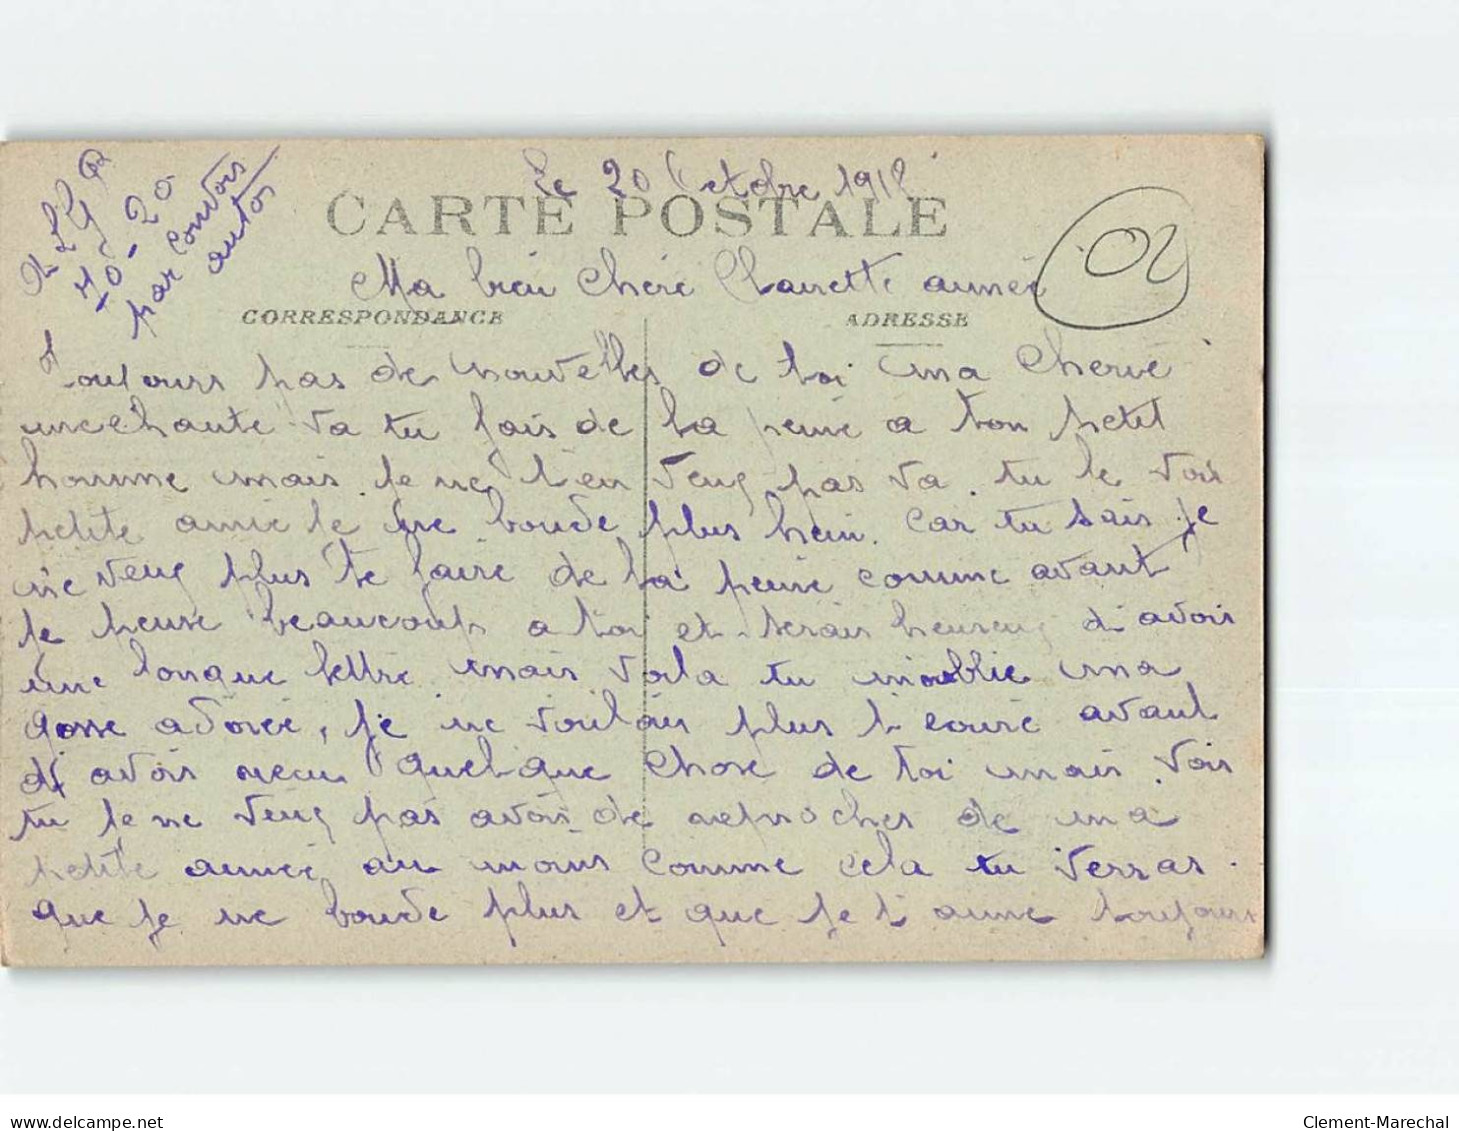 Le 20 Octobre 1918
10-20
par convois
autos
CARTE POSTALE
02
Ma bien chère Clairette aimée
CORRESPONDANCE
ADRESSE
Toujours pas de nouvelles de toi ma cherie
mechante va tu fais de la peine a ton petit
homme mais je ne t'en veux pas va. tu le vois
petite amie je ne boude plus hein. Car tu sais je
ne veux plus te faire de la peine comme avant
je pense beaucoup a toi et serais heureux d'avoir
une longue lettre mais voila tu m'oublie ma
gosse adorée, je ne voulais plus t'ecrire avant
d'avoir recu quelque chose de toi mais vois
tu je ne veux pas avoir de reproches de ma
petite aimée au moins comme cela tu verras.
que je ne boude plus et que je t'aime toujours
www.delcampe.net
Clement-Marechal